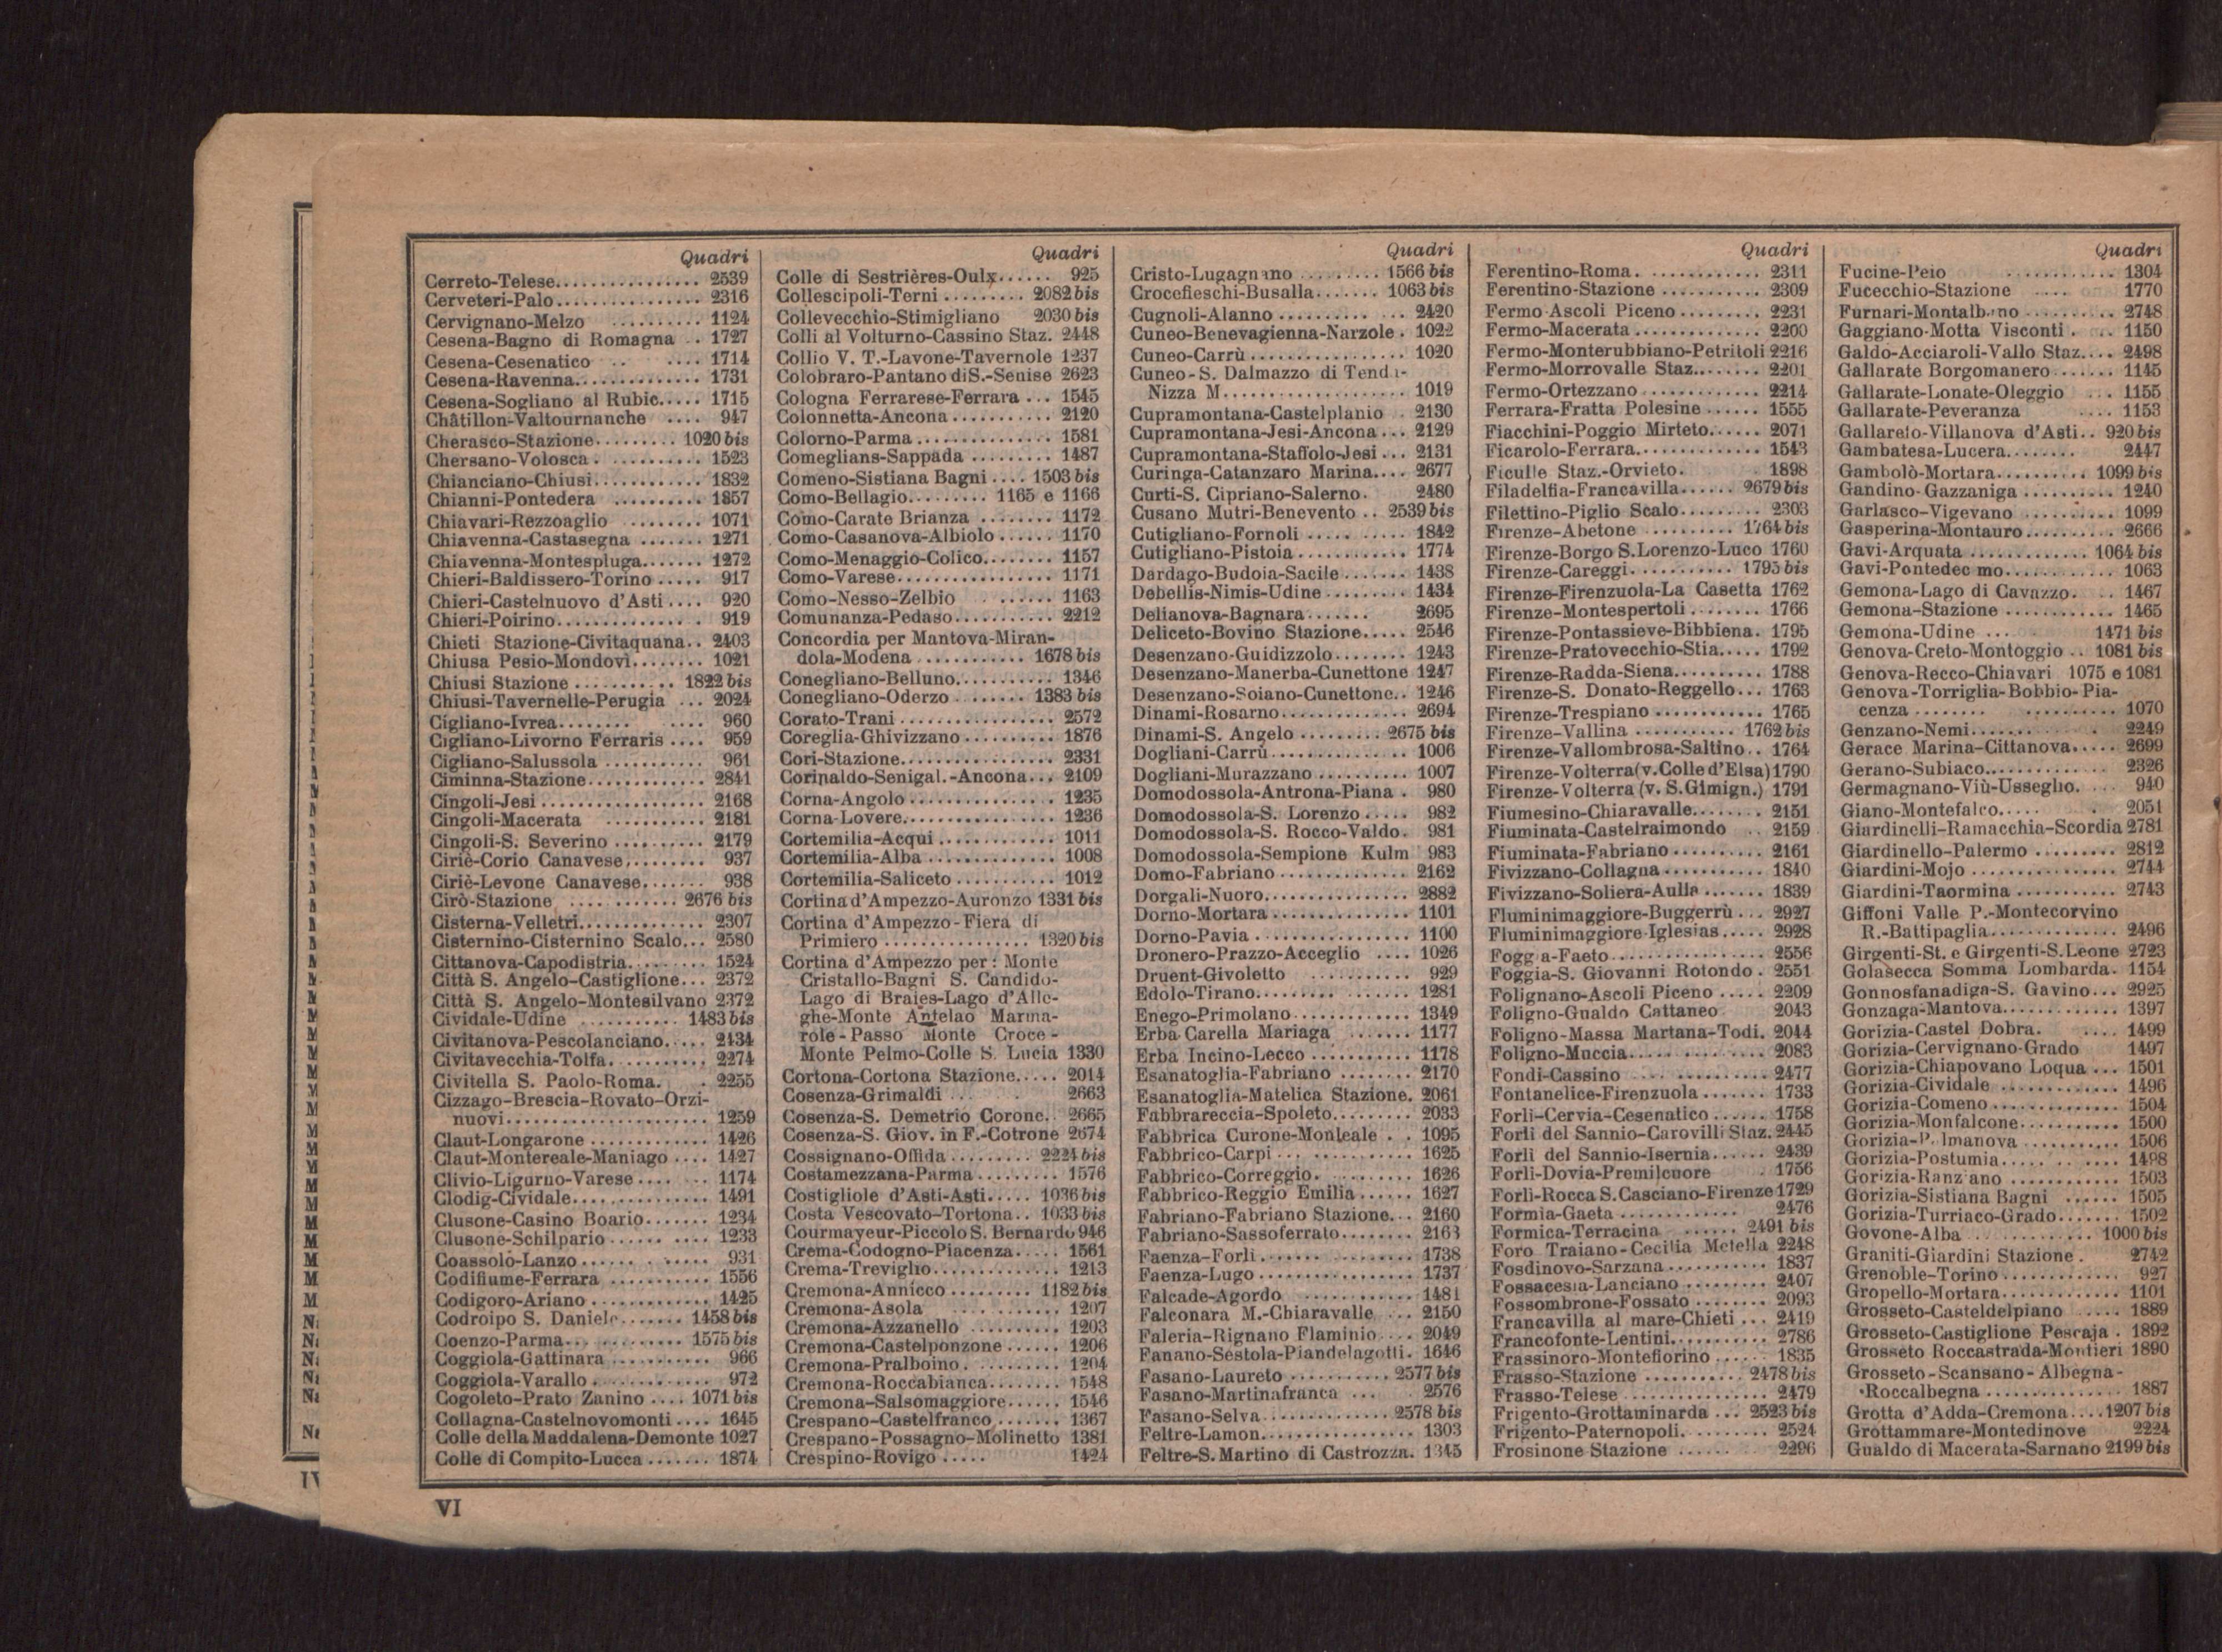 Quadri
Cerreto-Telese................ 2539
Cerveteri-Palo................ 2316
Cervignano-Melzo .......... 1124
Cesena-Bagno di Romagna .. 1727
Cesena-Cesenatico .. .... 1714
Cesena-Ravenna.............. 1731
Cesena-Sogliano al Rubic..... 1715
Châtillon-Valtournanche .... 947
Cherasco-Stazione......... 1020 bis
Chersano-Volosca. .......... 1523
Chianciano-Chiusi............ 1832
Chianni-Pontedera .......... 1857
Chiavari-Rezzoaglio ........ 1071
Chiavenna-Castasegna ....... 1271
Chiavenna-Montespluga....... 1272
Chieri-Baldissero-Torino ..... 917
Chieri-Castelnuovo d'Asti .... 920
Chieri-Poirino............... 919
Chieti Stazione-Civitaquana.. 2403
Chiusa Pesio-Mondovì........ 1021
Chiusi Stazione .......... 1822 bis
Chiusi-Tavernelle-Perugia ... 2024
Cigliano-Ivrea........ ..... 960
Cigliano-Livorno Ferraris .... 959
Cigliano-Salussola .......... 961
Ciminna-Stazione............ 2841
Cingoli-Jesi ................. 2168
Cingoli-Macerata .......... 2181
Cingoli-S. Severino ......... 2179
Ciriè-Corio Canavese......... 937
Ciriè-Levone Canavese....... 938
Cirò-Stazione ........... 2676 bis
Cisterna-Velletri............. 2307
Cisternino-Cisternino Scalo... 2580
Cittanova-Capodistria........ 1524
Città S. Angelo-Castiglione... 2372
Città S. Angelo-Montesilvano 2372
Cividale-Udine .......... 1483 bis
Civitanova-Pescolanciano..... 2434
Civitavecchia-Tolfa.......... 2274
Civitella S. Paolo-Roma. . 2255
Cizzago-Brescia-Rovato-Orzi-
nuovi..................... 1259
Claut-Longarone ............ 1426
Claut-Montereale-Maniago .... 1427
Clivio-Ligurno-Varese .... ... 1174
Clodig-Cividale.............. 1491
Clusone-Casino Boario....... 1234
Clusone-Schilpario ...... .... 1233
Coassolo-Lanzo...... . ..... 931
Codifiume-Ferrara .......... 1556
Codigoro-Ariano ............ 1425
Codroipo S. Daniele....... 1458 bis
Coenzo-Parma............ 1575 bis
Coggiola-Gattinara .......... 966
Coggiola-Varallo ............ 972
Cogoleto-Prato Zanino .... 1071 bis
Collagna-Castelnovomonti .... 1645
Colle della Maddalena-Demonte 1027
Colle di Compito-Lucca ....... 1874
Quadri
Colle di Sestrières-Oulx...... 925
Collescipoli-Terni ......... 2082 bis
Collevecchio-Stimigliano 2030 bis
Colli al Volturno-Cassino Staz. 2448
Collio V. T.-Lavone-Tavernole 1237
Colobraro-Pantano di S.-Senise 2623
Cologna Ferrarese-Ferrara ... 1545
Colonnetta-Ancona ........... 2120
Colorno-Parma .............. 1581
Comeglians-Sappada ......... 1487
Comeno-Sistiana Bagni .... 1503 bis
Como-Bellagio......... 1165 e 1166
Como-Carate Brianza ........ 1172
Como-Casanova-Albiolo ...... 1170
Como-Menaggio-Colico........ 1157
Como-Varese................ 1171
Como-Nesso-Zelbio ....... 1163
Comunanza-Pedaso........... 2212
Concordia per Mantova-Miran-
dola-Modena ........... 1678 bis
Conegliano-Belluno.......... 1346
Conegliano-Oderzo ........ 1383 bis
Corato-Trani ................ 2572
Coreglia-Ghivizzano .......... 1876
Cori-Stazione................ 2331
Corinaldo-Senigal.-Ancona... 2109
Corna-Angolo ............... 1235
Corna-Lovere................ 1236
Cortemilia-Acqui ............ 1011
Cortemilia-Alba ............. 1008
Cortemilia-Saliceto .......... 1012
Cortina d'Ampezzo-Auronzo 1331 bis
Cortina d'Ampezzo-Fiera di
Primiero ............... 1320 bis
Cortina d'Ampezzo per: Monte
Cristallo-Bagni S. Candido-
Lago di Braies-Lago d'Alle-
ghe-Monte Antelao Marma-
role-Passo Monte Croce-
Monte Pelmo-Colle S. Lucia 1330
Cortona-Cortona Stazione..... 2014
Cosenza-Grimaldi ... . 2663
Cosenza-S. Demetrio Corone.. 2665
Cosenza-S. Giov. in F.-Cotrone 2674
Cossignano-Offida ......... 2224 bis
Costamezzana-Parma ......... 1576
Costigliole d'Asti-Asti..... 1036 bis
Costa Vescovato-Tortona.. 1033 bis
Courmayeur-Piccolo S. Bernardo 946
Crema-Codogno-Piacenza..... 1561
Crema-Treviglio............. 1213
Cremona-Annicco ......... 1182 bis
Cremona-Asola ........... 1207
Cremona-Azzanello .......... 1203
Cremona-Castelponzone ...... 1206
Cremona-Pralboino. ......... 1204
Cremona-Roccabianca........ 1548
Cremona-Salsomaggiore...... 1546
Crespano-Castelfranco ....... 1367
Crespano-Possagno-Molinetto 1381
Crespino-Rovigo ..... 1424
Quadri
Cristo-Lugagnano ......... 1566 bis
Crocefieschi-Busalla....... 1063 bis
Cugnoli-Alanno .......... ... 2420
Cuneo-Benevagienna-Narzole . 1022
Cuneo-Carrù ................ 1020
Cuneo-S. Dalmazzo di Tenda-
Nizza M................... 1019
Cupramontana-Castelplanio . 2130
Cupramontana-Jesi-Ancona ... 2129
Cupramontana-Staffolo-Jesi ... 2131
Curinga-Catanzaro Marina.... 2677
Curti-S. Cipriano-Salerno. 2480
Cusano Mutri-Benevento .. 2539 bis
Cutigliano-Fornoli ..... ..... 1842
Cutigliano-Pistoia ........... 1774
Dardago-Budoia-Sacile ....... 1438
Debellis-Nimis-Udine ......... 1434
Delianova-Bagnara....... 2695
Deliceto-Bovino Stazione..... 2546
Desenzano-Guidizzolo........ 1243
Desenzano-Manerba-Cunettone 1247
Desenzano-Soiano-Cunettone.. 1246
Dinami-Rosarno............. 2694
Dinami-S. Angelo ......... 2675 bis
Dogliani-Carrù .............. 1006
Dogliani-Murazzano .......... 1007
Domodossola-Antrona-Piana . 980
Domodossola-S. Lorenzo ..... 982
Domodossola-S. Rocco-Valdo. 981
Domodossola-Sempione Kulm 983
Domo-Fabriano ............. 2162
Dorgali-Nuoro............... 2882
Dorno-Mortara .............. 1101
Dorno-Pavia ................ 1100
Dronero-Prazzo-Acceglio .... 1026
Druent-Givoletto .......... 929
Edolo-Tirano......... ....... 1281
Enego-Primolano............ 1349
Erba Carella Mariaga ....... 1177
Erba Incino-Lecco ........... 1178
Esanatoglia-Fabriano ........ 2170
Esanatoglia-Matelica Stazione. 2061
Fabbrareccia-Spoleto........ 2033
Fabbrica Curone-Monleale . . 1095
Fabbrico-Carpi ... ........... 1625
Fabbrico-Correggio. ......... 1626
Fabbrico-Reggio Emilia ...... 1627
Fabriano-Fabriano Stazione... 2160
Fabriano-Sassoferrato........ 2163
Faenza-Forlì ................ 1738
Faenza-Lugo ................ 1737
Falcade-Agordo ........... 1481
Falconara M.-Chiaravalle ... 2150
Faleria-Rignano Flaminio.... 2049
Fanano-Sestola-Piandelagotti. 1646
Fasano-Laureto .......... 2577 bis
Fasano-Martinafranca ... 2576
Fasano-Selva............. 2578 bis
Feltre-Lamon................ 1303
Feltre-S. Martino di Castrozza. 1345
Quadri
Ferentino-Roma. ............ 2311
Ferentino-Stazione ........... 2309
Fermo Ascoli Piceno ......... 2231
Fermo-Macerata ............. 2200
Fermo-Monterubbiano-Petritoli 2216
Fermo-Morrovalle Staz........ 2201
Fermo-Ortezzano ............ 2214
Ferrara-Fratta Polesine ...... 1555
Fiacchini-Poggio Mirteto...... 2071
Ficarolo-Ferrara............. 1543
Ficulle Staz.-Orvieto. . 1898
Filadelfia-Francavilla...... 2679 bis
Filettino-Piglio Scalo......... 2303
Firenze-Abetone .......... 1764 bis
Firenze-Borgo S. Lorenzo-Luco 1760
Firenze-Careggi........... 1795 bis
Firenze-Firenzuola-La Casetta 1762
Firenze-Montespertoli ........ 1766
Firenze-Pontassieve-Bibbiena. 1795
Firenze-Pratovecchio-Stia..... 1792
Firenze-Radda-Siena......... 1788
Firenze-S. Donato-Reggello... 1763
Firenze-Trespiano ............ 1765
Firenze-Vallina ........... 1762 bis
Firenze-Vallombrosa-Saltino.. 1764
Firenze-Volterra (v. Colle d'Elsa) 1790
Firenze-Volterra (v. S. Gimign.) 1791
Fiumesino-Chiaravalle....... 2151
Fiuminata-Castelraimondo .. 2159
Fiuminata-Fabriano .......... 2161
Fivizzano-Collagna ........... 1840
Fivizzano-Soliera-Aulla ....... 1839
Fluminimaggiore-Buggerrù ... 2927
Fluminimaggiore Iglesias ..... 2928
Foggia-Faeto ............... 2556
Foggia-S. Giovanni Rotondo . 2551
Folignano-Ascoli Piceno ..... 2209
Foligno-Gualdo Cattaneo 2043
Foligno-Massa Martana-Todi. 2044
Foligno-Muccia.............. 2083
Fondi-Cassino .... .......... 2477
Fontanelice-Firenzuola ....... 1733
Forlì-Cervia-Cesenatico ...... 1758
Forlì del Sannio-Carovilli Staz. 2445
Forlì del Sannio-Isernia...... 2439
Forlì-Dovia-Premilcuore . 1756
Forlì-Rocca S. Casciano-Firenze 1729
Formia-Gaeta ............. 2476
Formica-Terracina ....... 2491 bis
Foro Traiano-Cecilia Metella 2248
Fosdinovo-Sarzana........... 1837
Fossacesia-Lanciano ......... 2407
Fossombrone-Fossato ........ 2093
Francavilla al mare-Chieti ... 2419
Francofonte-Lentini.......... 2786
Frassinoro-Montefiorino ...... 1835
Frasso-Stazione ........... 2478 bis
Frasso-Telese ............... 2479
Frigento-Grottaminarda ... 2523 bis
Frigento-Paternopoli......... 2524
Frosinone Stazione ...... 2296
Quadri
Fucine-Peio ........... 1304
Fucecchio-Stazione .... 1770
Furnari-Montalbano ......... 2748
Gaggiano-Motta Visconti . ... 1150
Galdo-Acciaroli-Vallo Staz.... 2498
Gallarate Borgomanero ....... 1145
Gallarate-Lonate-Oleggio ... 1155
Gallarate-Peveranza .... 1153
Gallareto-Villanova d'Asti.. 920 bis
Gambatesa-Lucera........ 2447
Gambolò-Mortara.......... 1099 bis
Gandino-Gazzaniga .......... 1240
Garlasco-Vigevano ........... 1099
Gasperina-Montauro .......... 2666
Gavi-Arquata ............ 1064 bis
Gavi-Pontedecimo............ 1063
Gemona-Lago di Cavazzo. .. 1467
Gemona-Stazione ............ 1465
Gemona-Udine ... . 1471 bis
Genova-Creto-Montoggio .. 1081 bis
Genova-Recco-Chiavari 1075 e 1081
Genova-Torriglia-Bobbio-Pia-
cenza ........ .......... 1070
Genzano-Nemi........ . 2249
Gerace Marina-Cittanova..... 2699
Gerano-Subiaco............. 2326
Germagnano-Viù-Usseglio. ... 940
Giano-Montefalco..... . 2051
Giardinelli-Ramacchia-Scordia 2781
Giardinello-Palermo ......... 2812
Giardini-Mojo ............... 2744
Giardini-Taormina ........... 2743
Giffoni Valle P.-Montecorvino
R.-Battipaglia.............. 2496
Girgenti-St. e Girgenti-S. Leone 2723
Golasecca Somma Lombarda. 1154
Gonnosfanadiga-S. Gavino... 2925
Gonzaga-Mantova............ 1397
Gorizia-Castel Dobra. .... 1499
Gorizia-Cervignano-Grado 1497
Gorizia-Chiapovano Loqua ... 1501
Gorizia-Cividale ............. 1496
Gorizia-Comeno ............. 1504
Gorizia-Monfalcone........... 1500
Gorizia-Palmanova .......... 1506
Gorizia-Postumia..... .. .... 1498
Gorizia-Ranziano ............ 1503
Gorizia-Sistiana Bagni ...... 1505
Gorizia-Turriaco-Grado....... 1502
Govone-Alba ............. 1000 bis
Graniti-Giardini Stazione . 2742
Grenoble-Torino ............. 927
Gropello-Mortara............. 1101
Grosseto-Casteldelpiano .... 1889
Grosseto-Castiglione Pescaja . 1892
Grosseto Roccastrada-Montieri 1890
Grosseto-Scansano-Albegna-
Roccalbegna .............. 1887
Grotta d'Adda-Cremona.... 1207 bis
Grottammare-Montedinove 2224
Gualdo di Macerata-Sarnano 2199 bis
VI